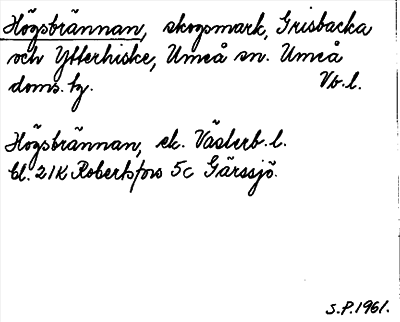 Högsbrännan, skogsmark, Grisbacka
och Ytterhiske, Umeå sn. Umeå
doms. hg. Vb.l.
Högsbrännan, ek. Västerb. l.
bl. 21K Robertsfors 5c Gärssjö.
S.P.1961.